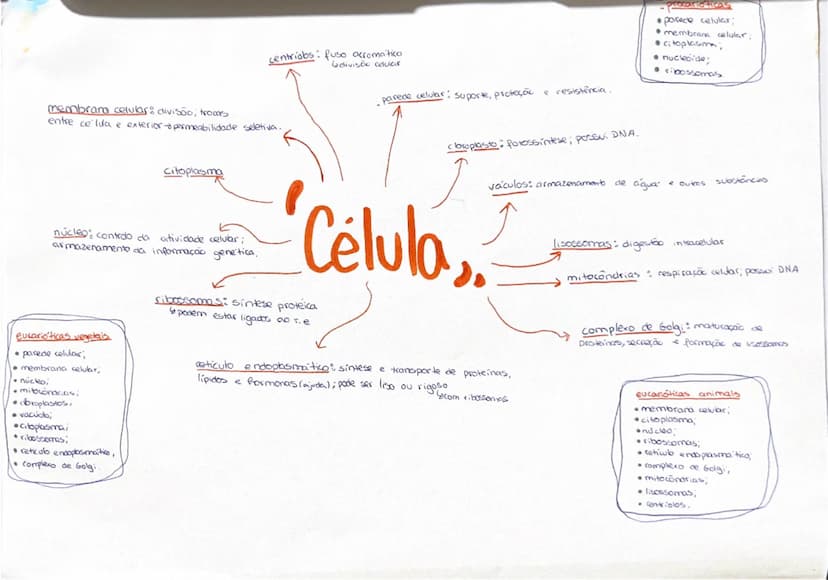 procarióticas
• parede celular;
• membrana celular;
• citoplasma;
• nucleóide;
• ribossomas.
centríolos: fuso acromático
↳ divisão celular
parede celular: suporte, proteção e resistência.
membrana celular: divisão, trocas
entre célula e exterior → permeabilidade seletiva.
cloroplasto: fotossíntese; possui DNA.
citoplasma
vacúolos: armazenamento de água e outras substâncias
Célula
núcleo: controlo da atividade celular;
armazenamento da informação genética.
lisossomas: digestão intracelular
mitocôndrias: respiração celular; possui DNA
ribossomas: síntese protéica
↳ podem estar ligados ao r.e
complexo de Golgi: maturação de
proteínas, secreção e formação de lisossomas
retículo endoplasmático: síntese e transporte de proteínas,
lípidos e hormonas (ajuda); pode ser liso ou rugoso
↳ com ribossomas
eucarióticas vegetais
• parede celular;
• membrana celular;
• núcleo;
• mitocôndrias;
• cloroplastos;
• vacúolo;
• citoplasma;
• ribossomas;
• retículo endoplasmático;
• complexo de Golgi.
eucarióticas animais
• membrana celular;
• citoplasma;
• núcleo;
• ribossomas;
• retículo endoplasmático;
• complexo de Golgi;
• mitocôndrias;
• lisossomas;
• centríolos.